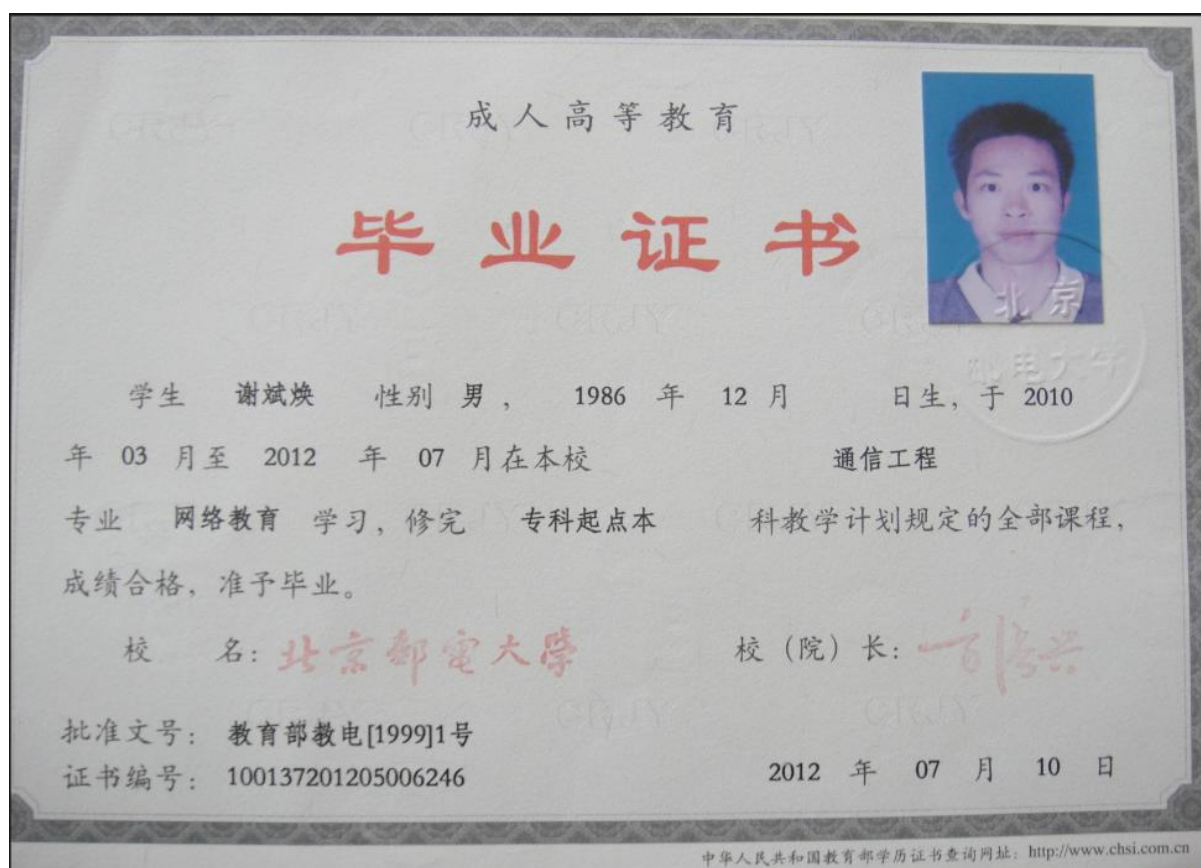 成人高等教育
毕业证书
北京
邮电大学
学生 谢斌焕 性别 男, 1986 年 12 月 日生, 于 2010
年 03 月至 2012 年 07 月在本校 通信工程
专业 网络教育 学习, 修完 专科起点本 科教学计划规定的全部课程,
成绩合格, 准予毕业。
校 名: 北京邮电大學 校 (院) 长:
批准文号: 教育部教电[1999]1号
证书编号: 100137201205006246 2012 年 07 月 10 日
中华人民共和国教育部学历证书查询网址: http://www.chsi.com.cn